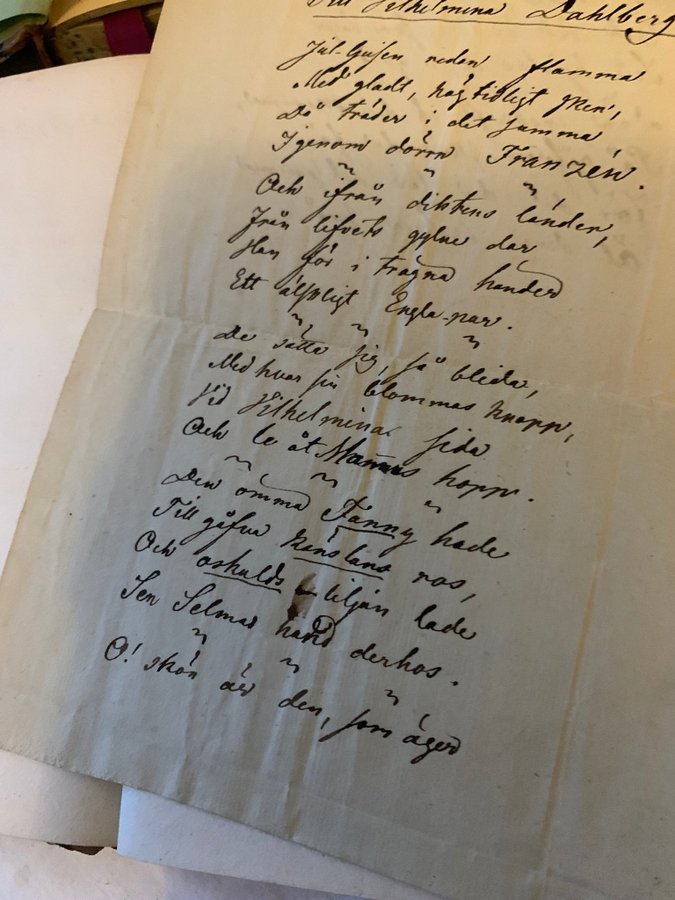 Till Wilhelmina Dahlberg
Jul-ljusen reden flamma
Med gladt, högtidligt sken,
Då träder i det samma
Igenom dörrn Franzén.
Och ifrån diktens länder,
Från lifvets gylne dar
Han för i trägna händer
Ett älskligt Engla-par.
De sätta sig, så blida,
Med hvar sin blommas knopp,
Vid Wilhelminas sida
Och le åt Mammas hopp.
Den ömma Fanny hade
Till gåfva känslans ros,
Och oskulds-liljan lade
Sen Selmas hand derhos.
O! skön är den, som äger